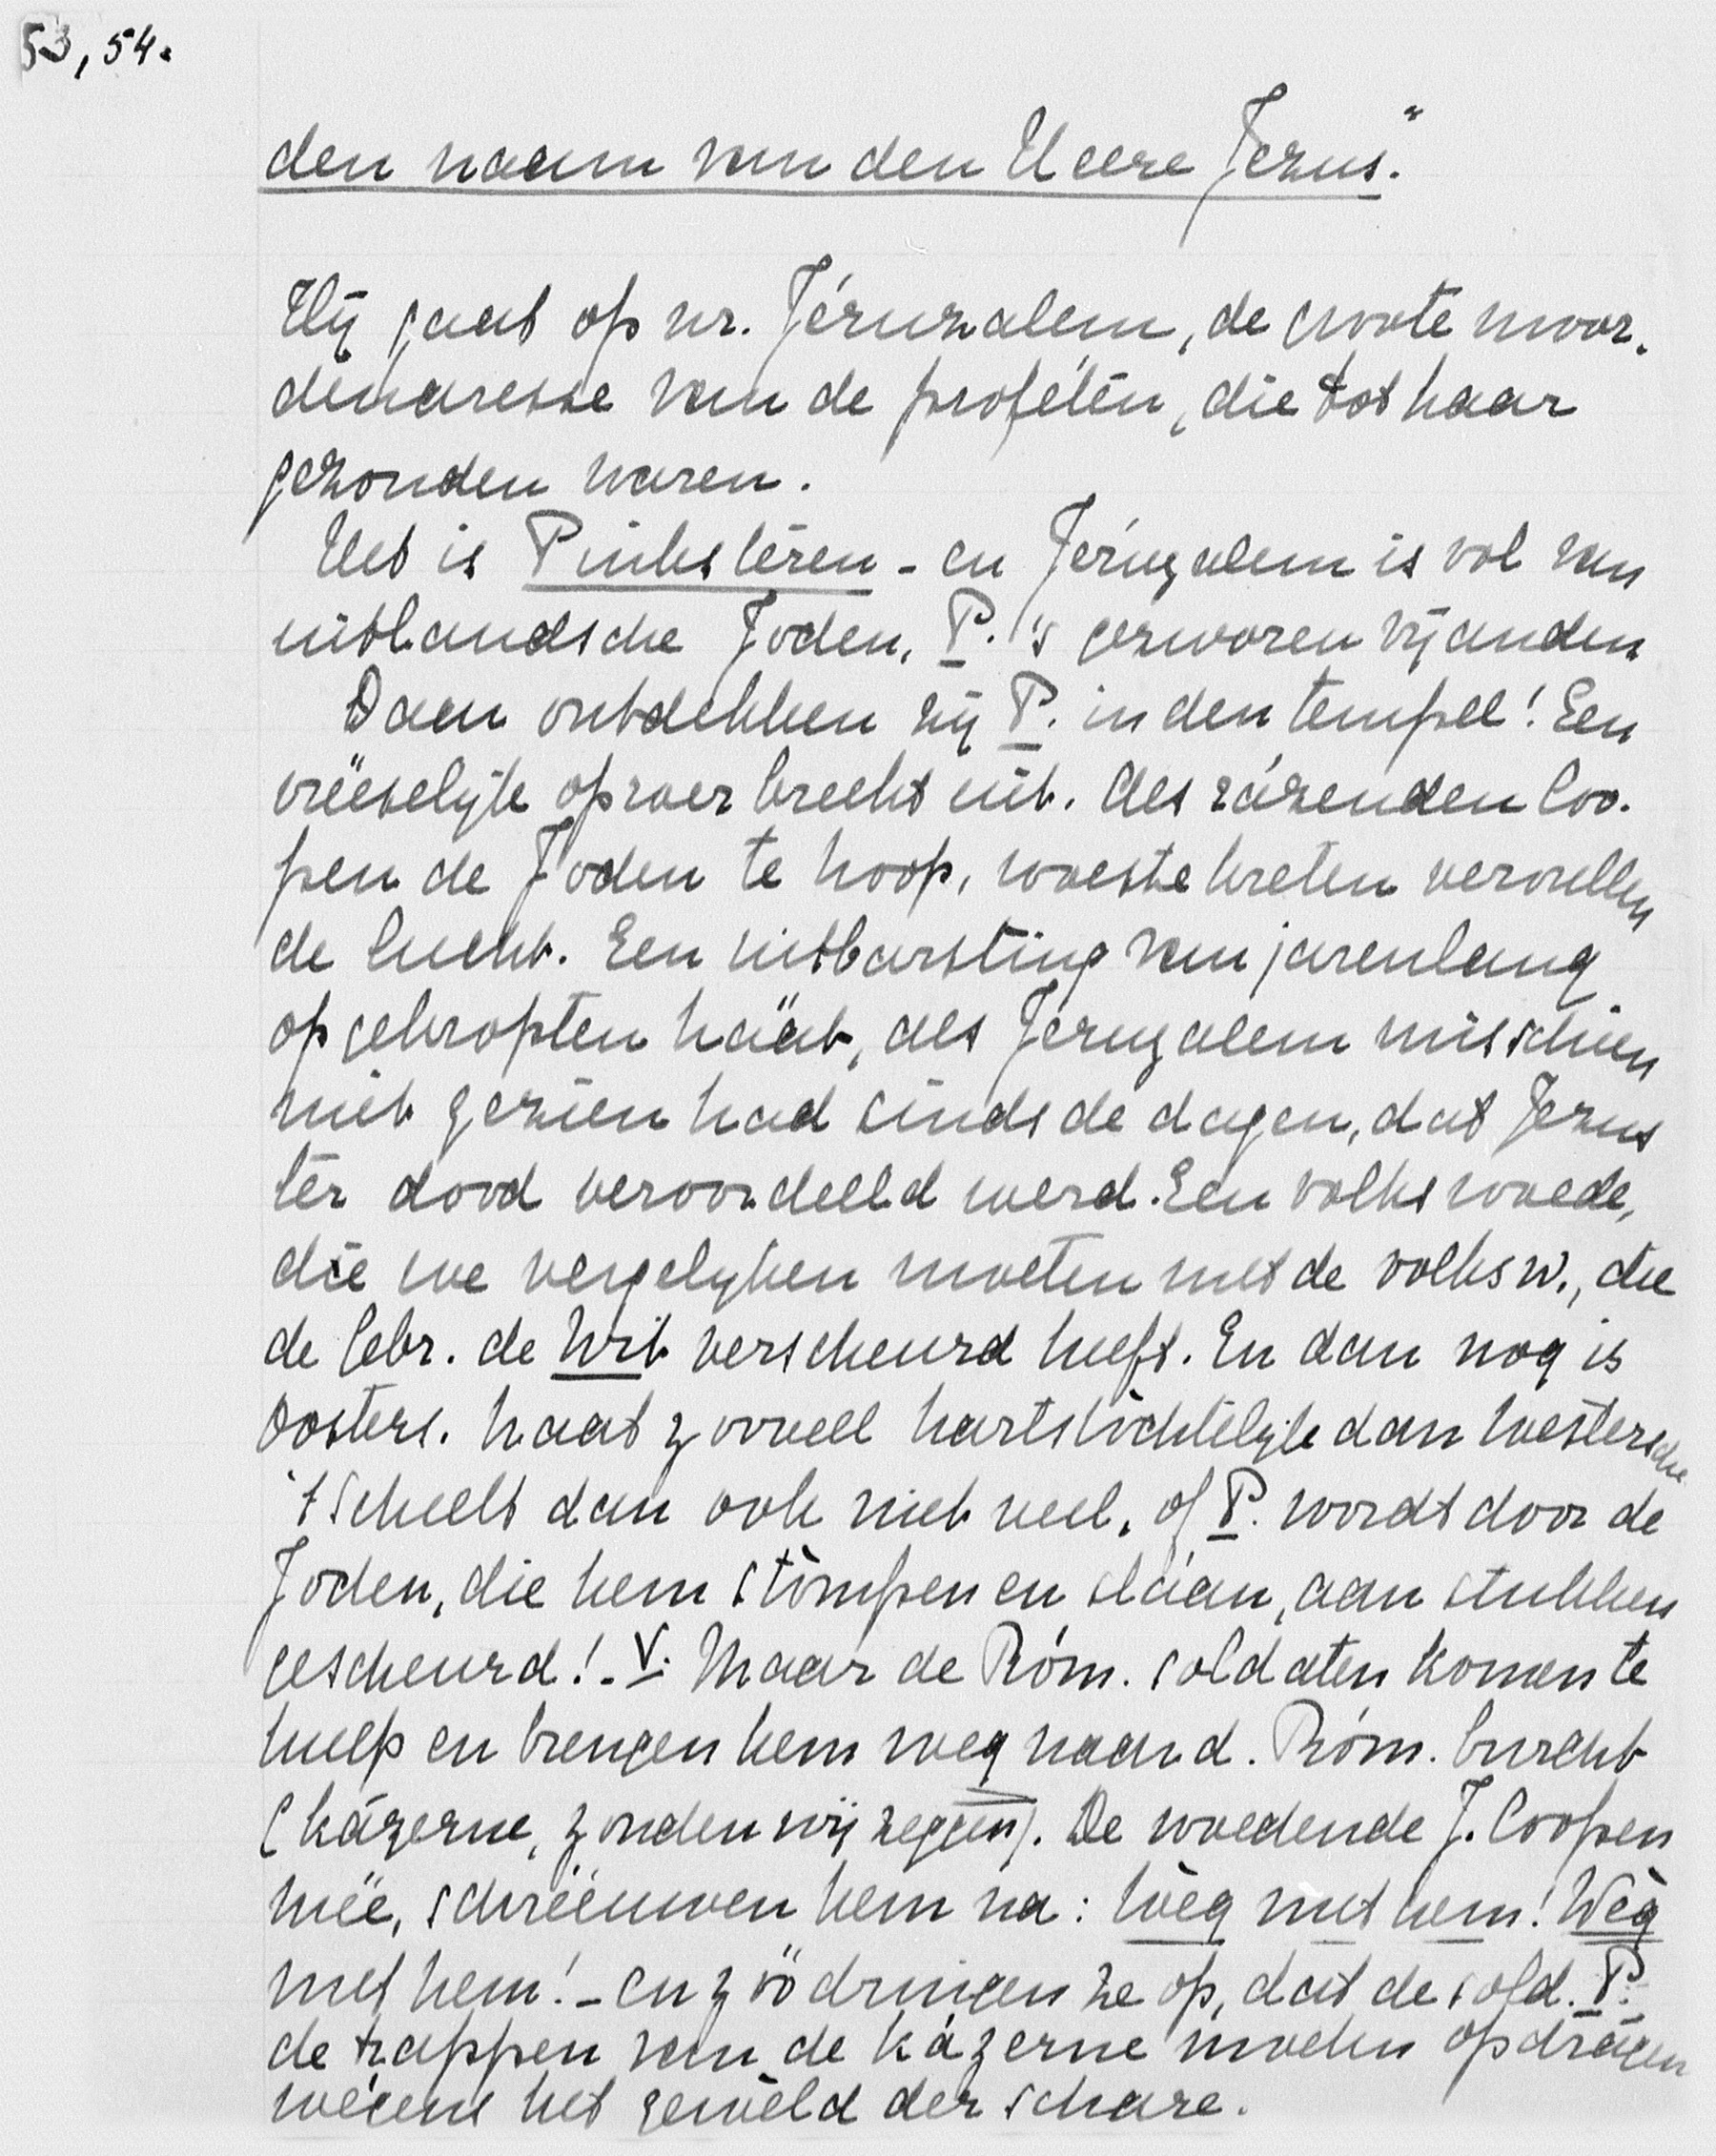 53, 54.
den naam van den Heere Jezus."
Hij gaat op nr. Jéruzalem, de groote moor-
denaresse van de profeten, die tot haar
gezonden waren.
Het is Pinksteren - en Jéruzalem is vol van
uitlandsche Joden, P.'s gezworen vijanden
Daar ontdekken zij P. in den tempel! Een
vreeselijk oproer breekt uit. Als rázenden loo-
pen de Joden te hoop, woeste kreten vervullen
de lucht. Een uitbarsting van jarenlang
opgekropten haat, als Jeruzalem misschien
niet gezien had sinds de dagen, dat Jezus
ter dood veroordeeld werd. Een volkswoede,
die we vergelijken moeten met de volksw., die
de gebr. de Wit verscheurd heeft. En dan nog is
Oosters. haat zooveel hartstochtelijk dan Westersche
't Scheelt dan ook niet veel, of P. wordt door de
Joden, die hem stompen en sláan, aan stukken
gescheurd! - V. Maar de Róm. soldaten komen te
hulp en brengen hem weg naar d. Róm. burcht
(kázerne, zouden wij zeggen). De woedende J. loopen
mëe, schreeuwen hem na: Wèg met hem! Wèg
met hem! - en zóó dringen ze op, dat de sold. P.
de trappen van de kázerne moeten opdragen
wégens het gewèld der schare.